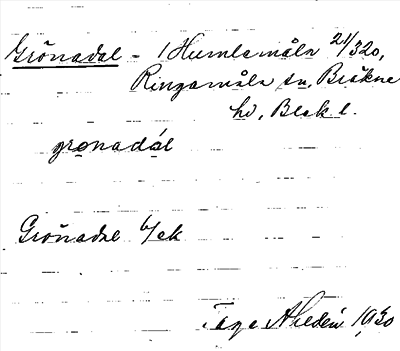 Grönadal - 1 Humlamåla 21/320,
Ringamåla sn, Bräkne
hd, Blek. l.
gronadal
Grönadal 1/ek
Tage Ahlén 1930